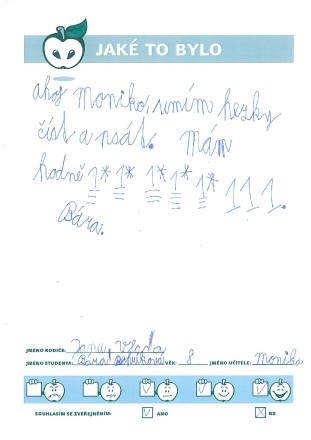 JAKÉ TO BYLO
ahoj Moniko, umím hezky
číst a psát. Mám
hodně 1* 1* 1* 1* 1* 1 1 1.
Bára.
JMÉNO RODIČE: Jana
JMÉNO STUDENTA: Bára VĚK: 8 JMÉNO UČITELE: Monika
SOUHLASÍM SE ZVEŘEJNĚNÍM: ANO NE